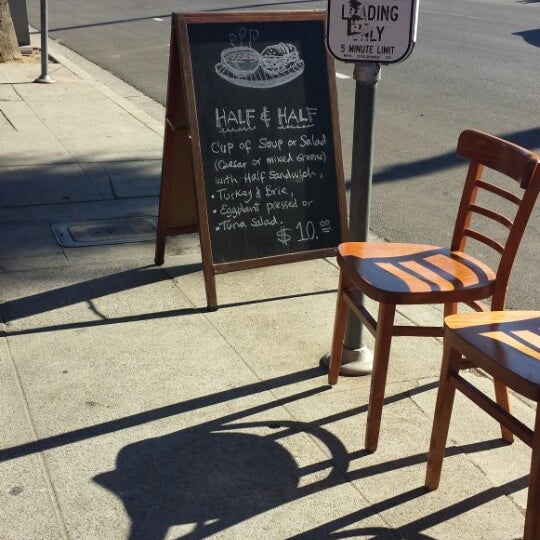 LOADING
ONLY
5 MINUTE LIMIT
HALF & HALF
Cup of Soup or Salad
(Caesar or mixed greens)
with Half Sandwich,
• Turkey & Brie,
• Eggplant pressed or
• Tuna Salad.
$10.00